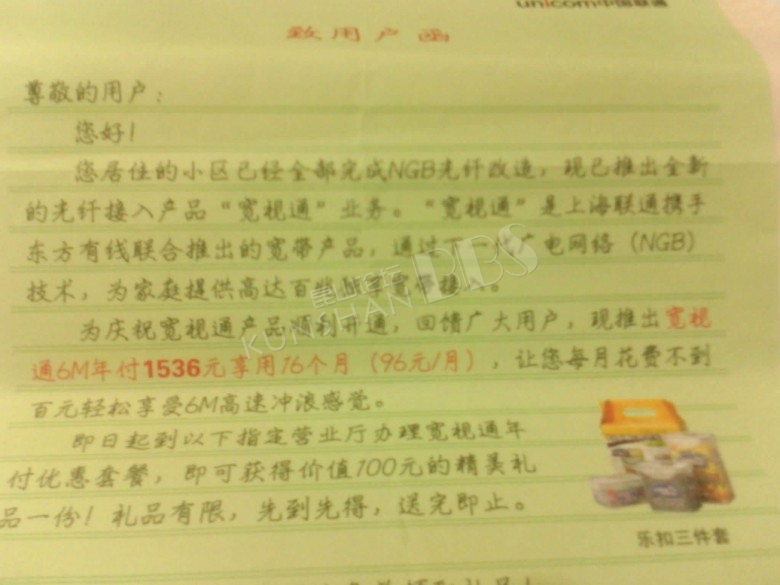 unicom中国联通
致用户函
尊敬的用户：
您好！
您居住的小区已经全部完成NGB光纤改造，现已推出全新
的光纤接入产品“宽视通”业务。“宽视通”是上海联通携手
东方有线联合推出的宽带产品，通过下一代广电网络（NGB）
技术，为家庭提供高达百兆独享宽带接入。
为庆祝宽视通产品顺利开通，回馈广大用户，现推出宽视
通6M年付1536元享用16个月（96元/月），让您每月花费不到
百元轻松享受6M高速冲浪感觉。
即日起到以下指定营业厅办理宽视通年
付优惠套餐，即可获得价值100元的精美礼
品一份！礼品有限，先到先得，送完即止。
乐扣三件套
昆山论坛
KUNSHAN BBS